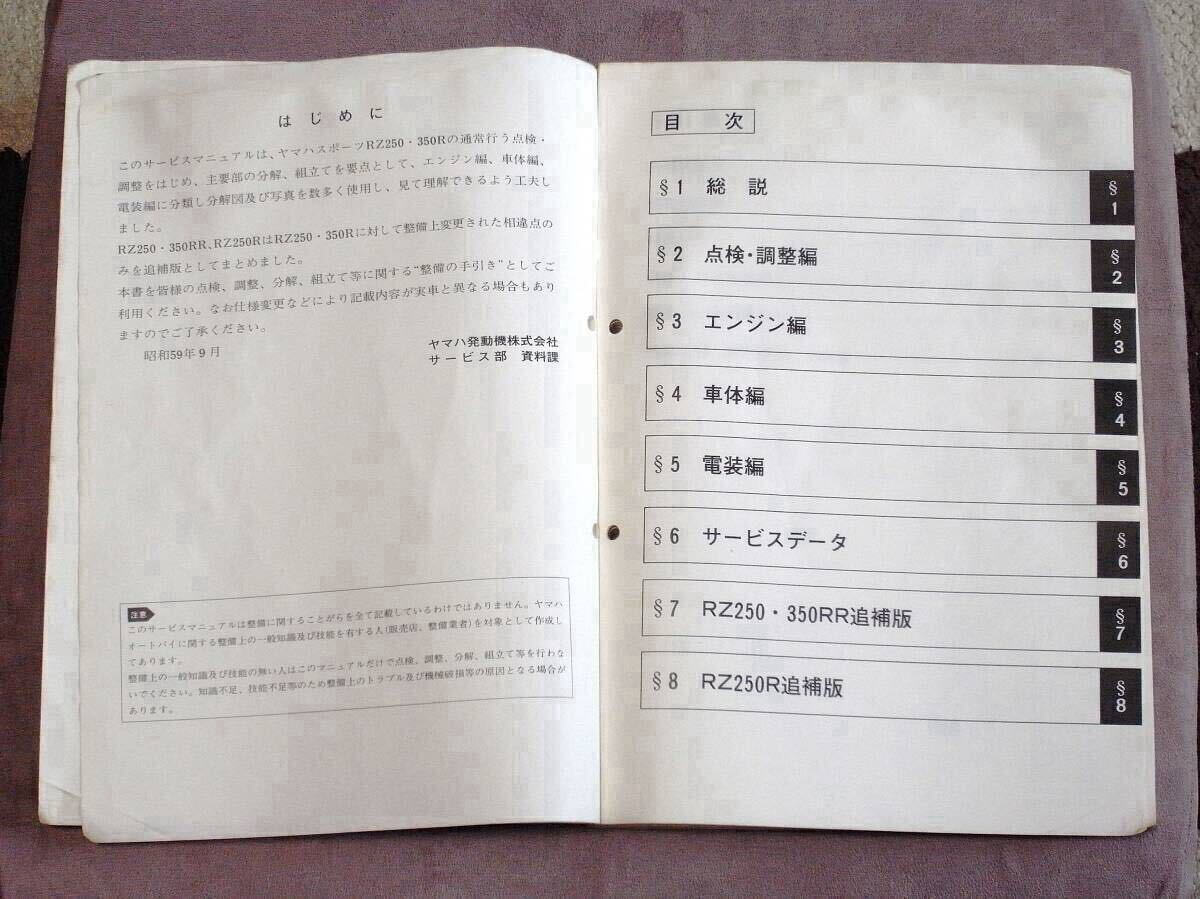 はじめに
このサービスマニュアルは、ヤマハスポーツRZ250・350Rの通常行う点検・
調整をはじめ、主要部の分解、組立てを要点として、エンジン編、車体編、
電装編に分類し分解図及び写真を数多く使用し、見て理解できるよう工夫し
ました。
RZ250・350RR、RZ250RはRZ250・350Rに対して整備上変更された相違点の
みを追補版としてまとめました。
本書を皆様の点検、調整、分解、組立て等に関する“整備の手引き”としてご
利用ください。なお仕様変更などにより記載内容が実車と異なる場合もあり
ますのでご了承ください。
昭和59年9月
ヤマハ発動機株式会社
サービス部 資料課
注意
このサービスマニュアルは整備に関することがらを全て記載しているわけではありません。ヤマハ
オートバイに関する整備上の一般知識及び技能を有する人(販売店、整備業者)を対象として作成し
てあります。
整備上の一般知識及び技能の無い人はこのマニュアルだけで点検、調整、分解、組立て等を行わな
いでください。知識不足、技能不足等のため整備上のトラブル及び機械破損等の原因となる場合が
あります。
目次
§1 総説
§1
§2 点検・調整編
§2
§3 エンジン編
§3
§4 車体編
§4
§5 電装編
§5
§6 サービスデータ
§6
§7 RZ250・350RR追補版
§7
§8 RZ250R追補版
§8